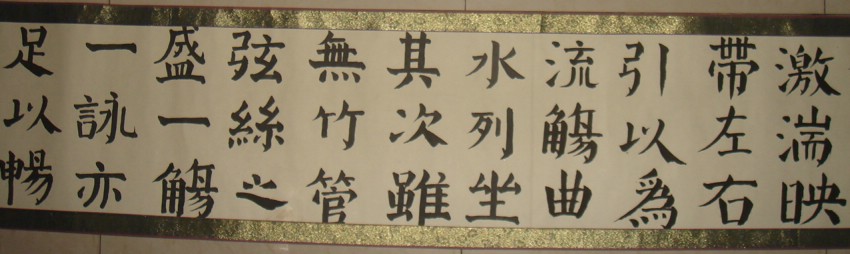 激湍映
帶左右
引以為
流觴曲
水列坐
其次雖
無竹管
弦絲之
盛一觴
一詠亦
足以暢